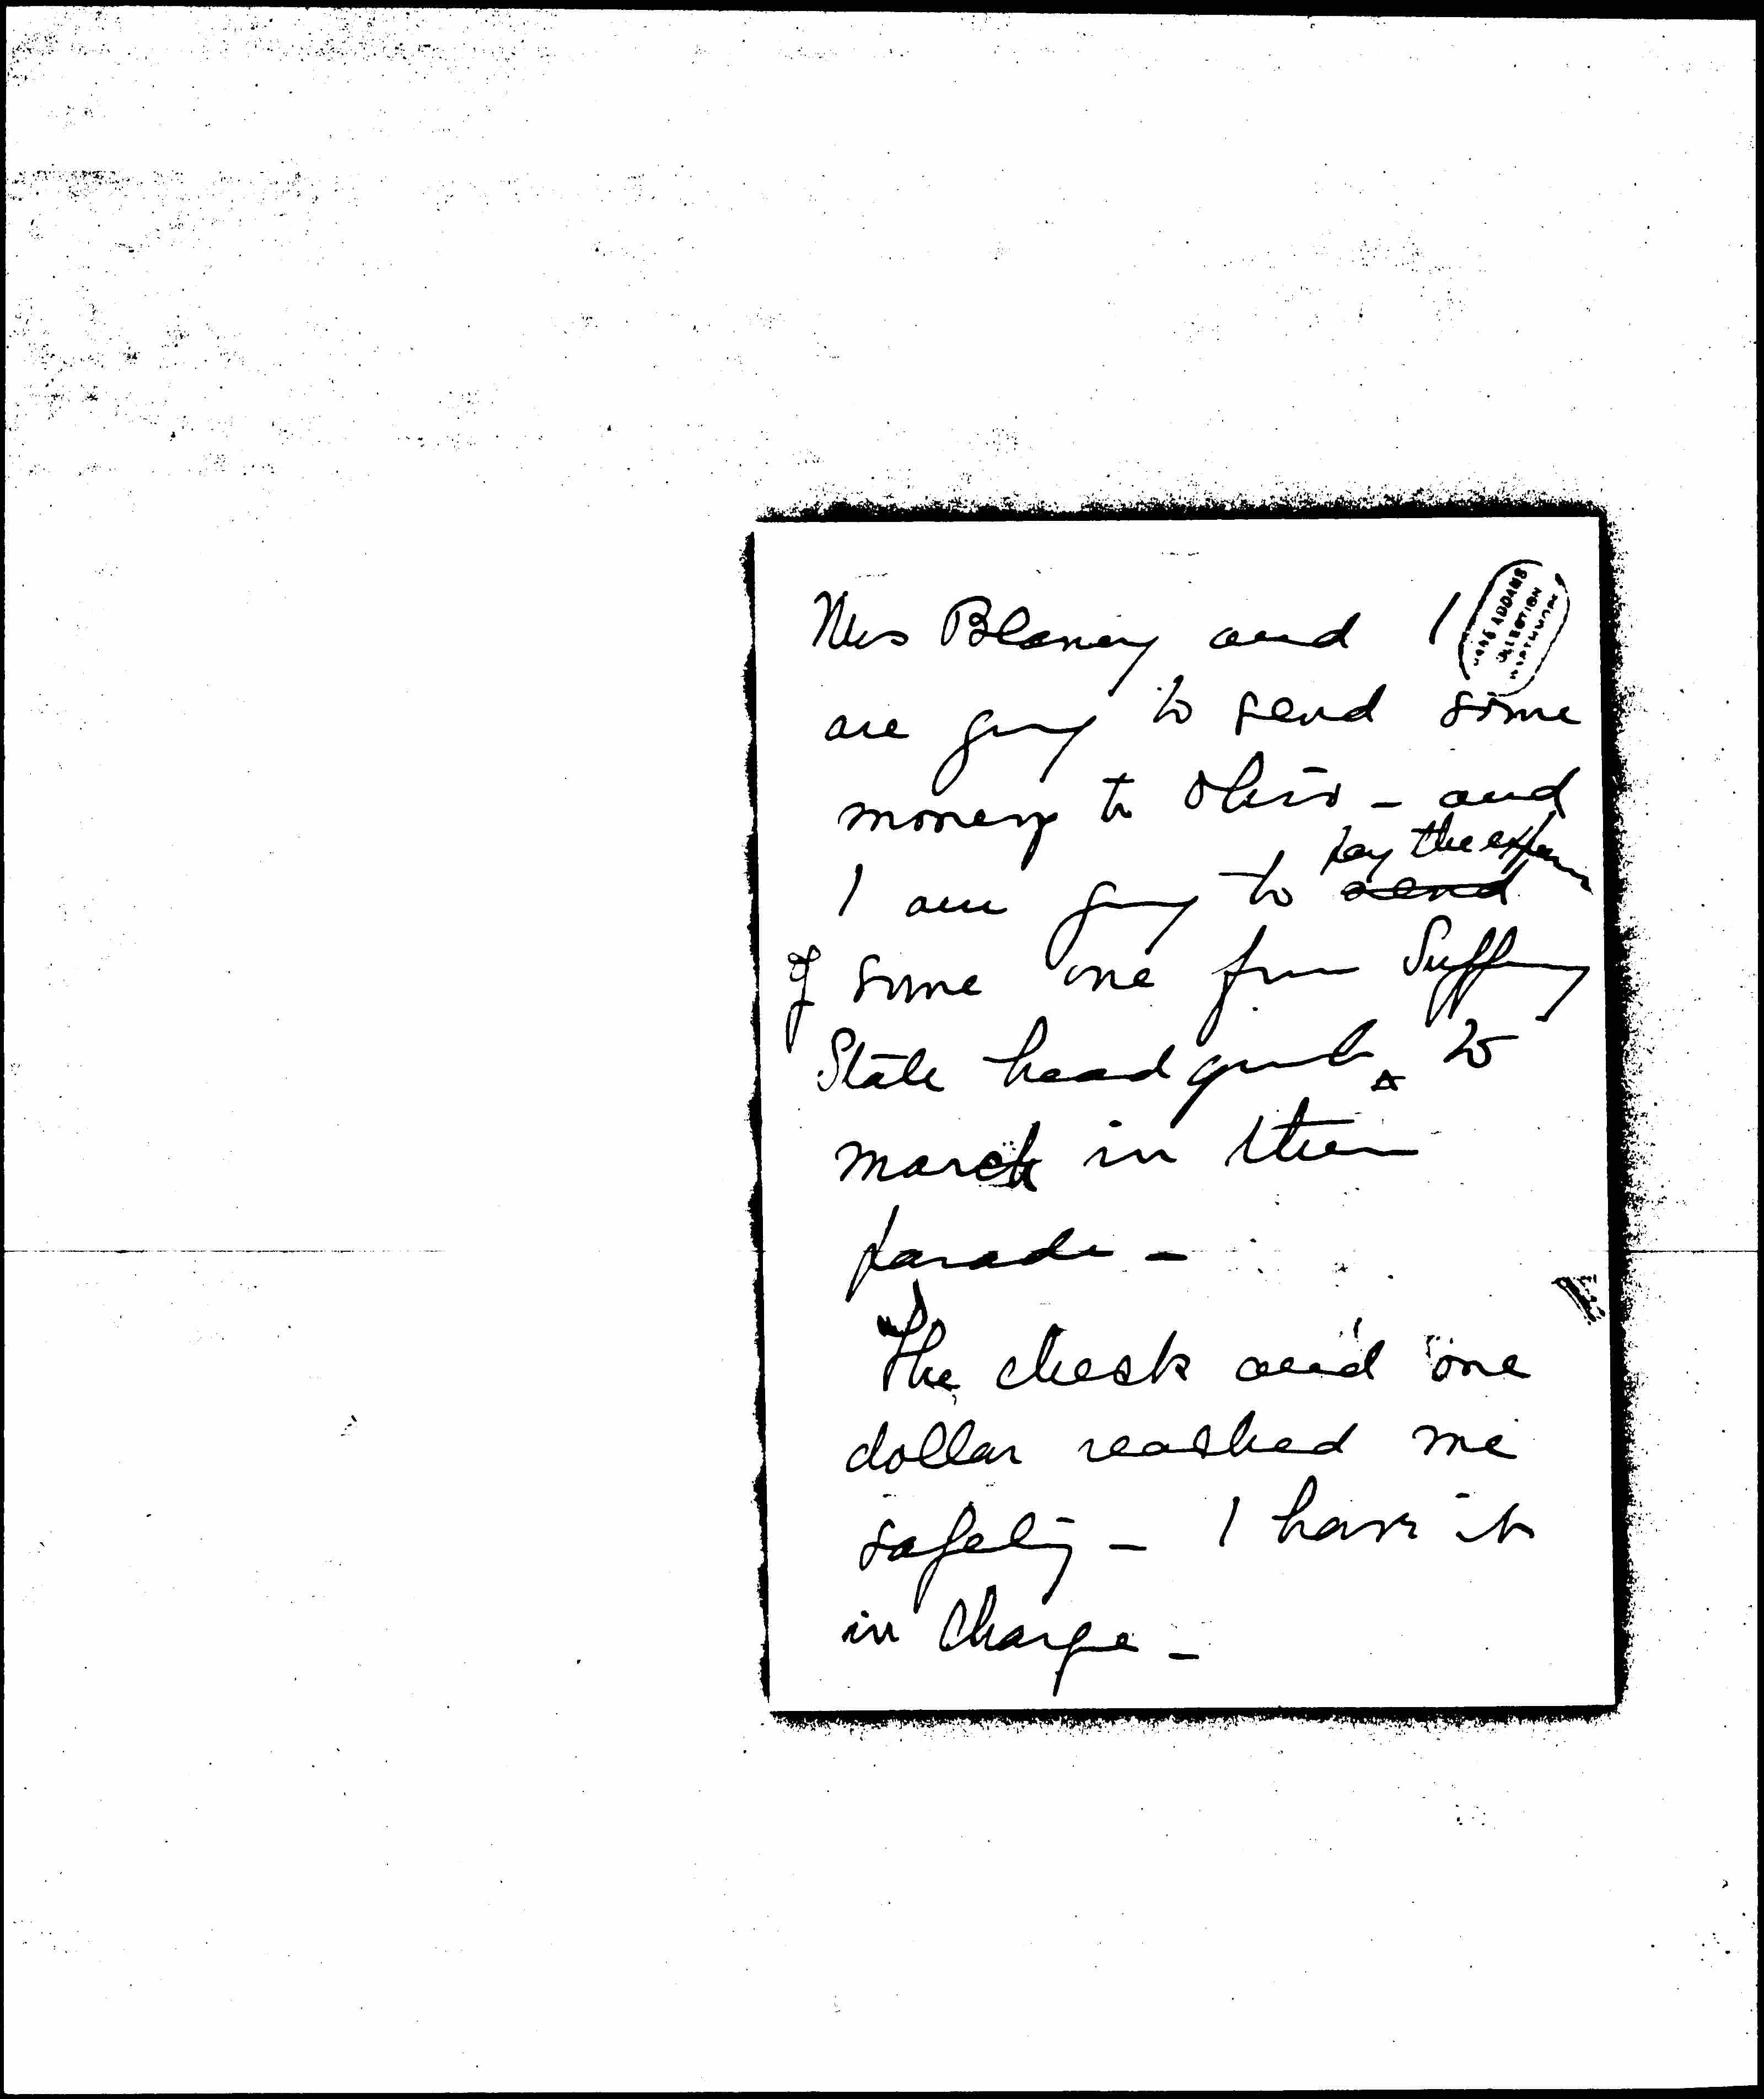 Mrs Blaney and I
JANE ADDAMS
COLLECTION
SWARTHMORE
are going to send some
money to Ohio - and
pay the expenses
I am going to send
of some one from Suffrag
State headquarters to
march in their
parade -
The check and one
dollar reached me
safely - I have it
in charge -